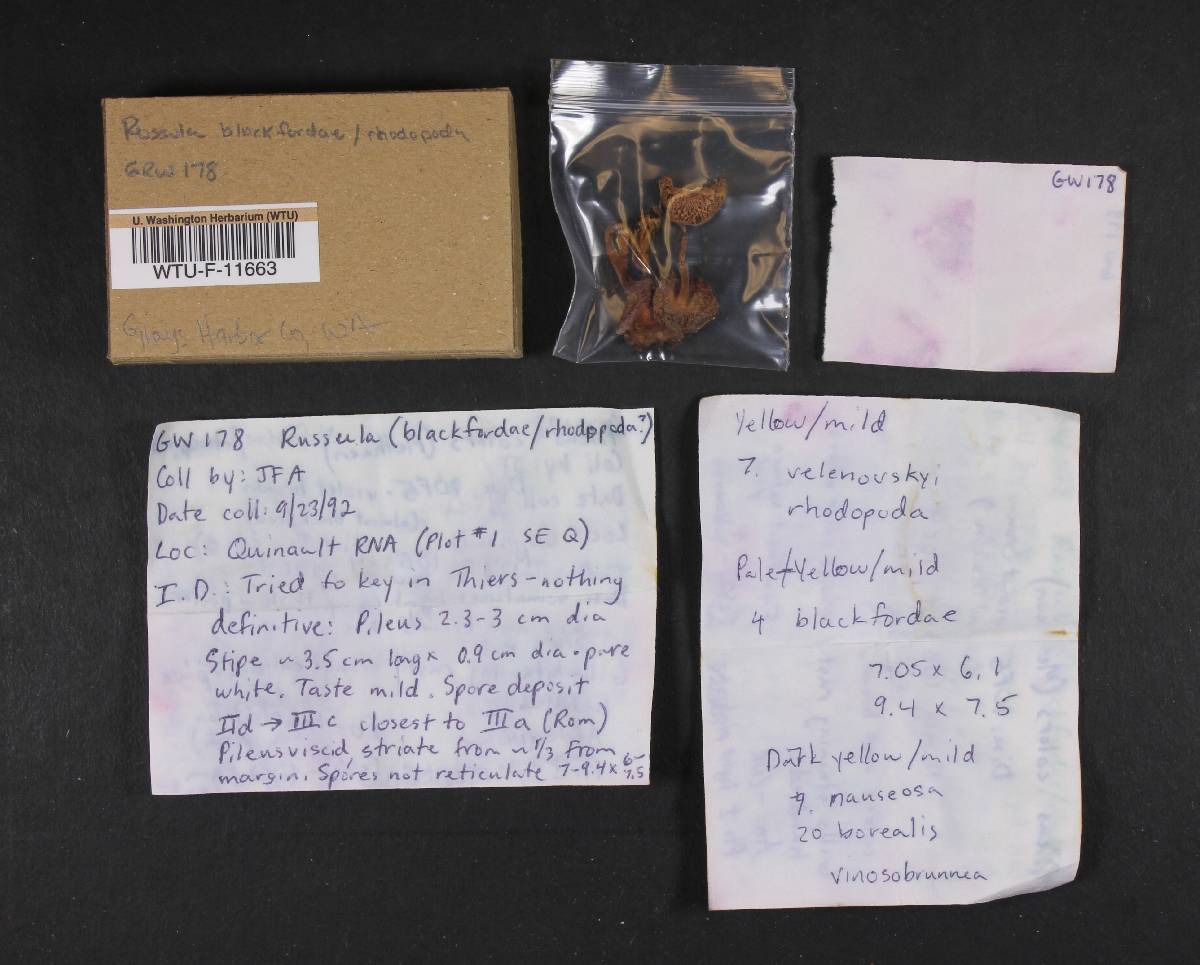 Russula blackfordae/rhodopoda
GRW 178
U. Washington Herbarium (WTU)
WTU-F-11663
Grays Harbor Co, WA
GW178
GW 178 Russula (blackfordae/rhodopoda?)
Coll by: JFA
Date coll: 9/23/92
Loc: Quinault RNA (Plot #1 SE Q)
I.D.: Tried to key in Thiers - nothing
definitive: Pileus 2.3-3 cm dia
Stipe ~ 3.5 cm long x 0.9 cm dia. pure
white. Taste mild. Spore deposit
IId → IIIc closest to IIIa (Rom)
Pileus viscid, striate from ~ 1/3 from
margin. Spores not reticulate 7-9.4 x 6-7.5
Yellow/mild
7. velenovskyi
rhodopoda
Pale-Yellow/mild
4 blackfordae
7.05 x 6.1
9.4 x 7.5
Dark yellow/mild
9. nauseosa
20 borealis
vinosobrunnea